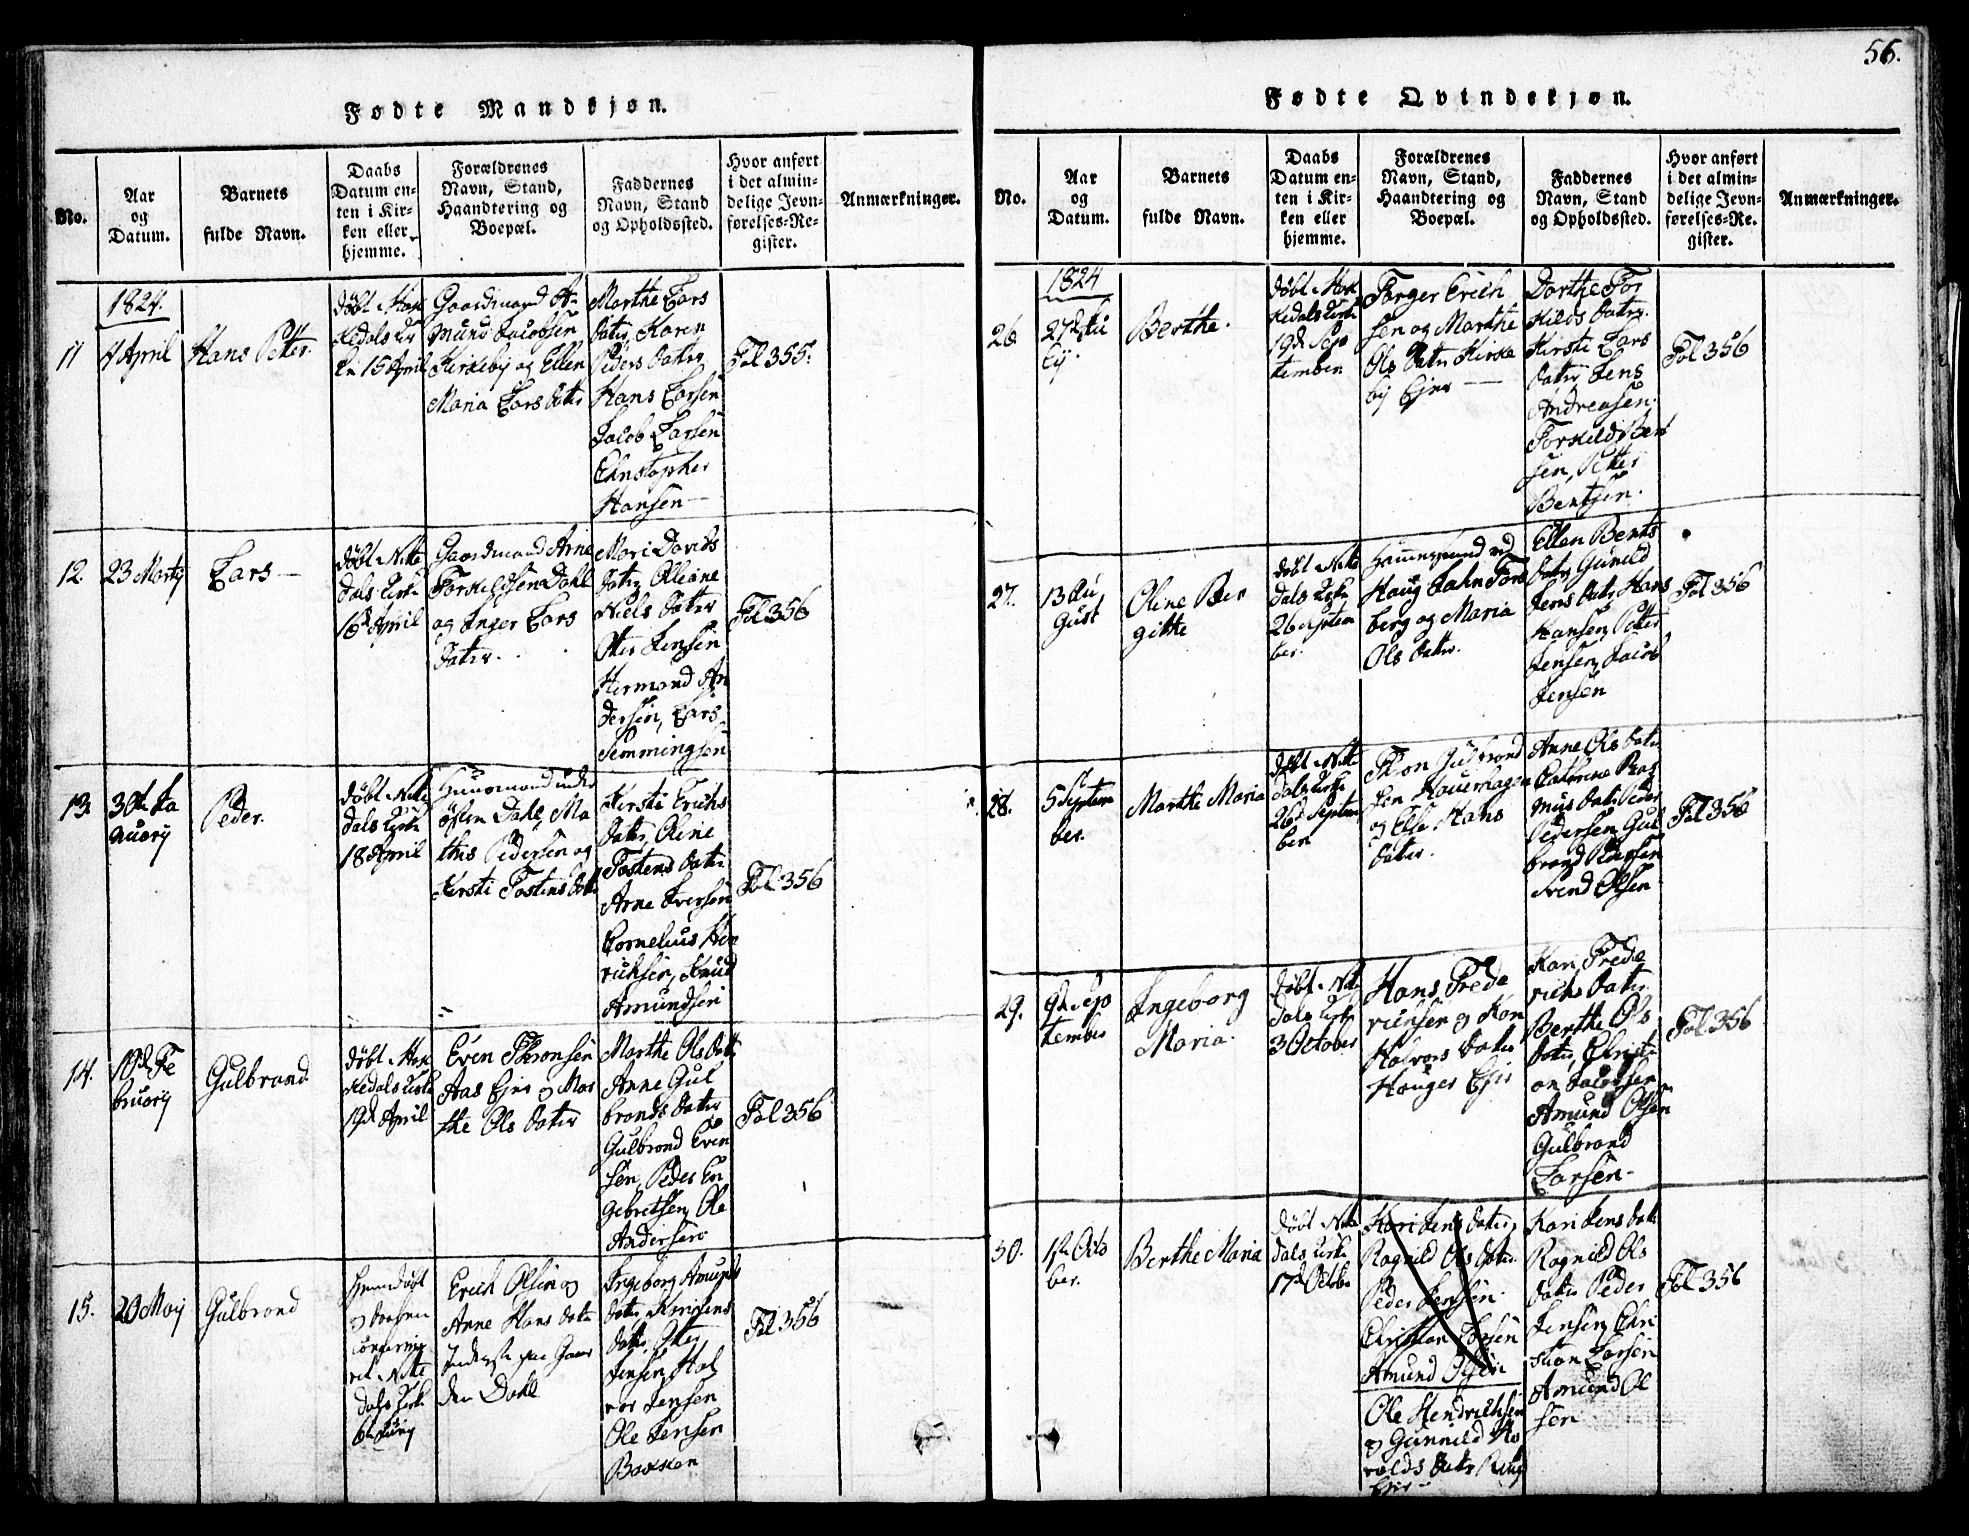 56.
Fødte Mandkjøn.
No.
Aar
og
Datum.
Barnets
fulde Navn.
Daabs
Datum en-
ten i Kir-
ken eller
hjemme.
Forældrenes
Navn, Stand,
Haandtering og
Boepæl.
Faddernes
Navn, Stand
og Opholdssted.
Hvor anført
i det almin-
delige Jevn-
førelses-Re-
gister.
Anmærkninger.
1824.
11
4 April
Hans Petter.
døbt i Hak
kedals Kir
ke 15 April
Gaardmand A-
mund Jacobsen
Kirkeby og Ellen
Maria Lars datter
Marthe Lars
datter, Karen
Peders datter
Hans Larsen
Jacob Larsen
Christopher
Hansen
Fol 355.
12.
23 Marty
Lars
døbt i Nitte
dals Kirke
16 April
Gaardmand Arne
Torkildsen Dahl
og Inger Lars
datter.
Mari Davids
datter, Olleane
Niels datter
Otter Jensen
Hermand An
dersen, Lars
Semmingsen
Fol 356
13.
30te Ja
nuary
Peder.
døbt i Nitte
dals Kirke
18 April
Huusmand under
Dahl, Ma
this Pedersen og
Kirsti Tostens datter
Kirsti Erichs
datter, Oline
Tostens datter
Arne Iversen
Cornelius Hen
richsen, Knud
Amundsen
Fol 356
14.
10de Fe
bruary
Gulbrand
døbt i Hak
kedals Kirke
19de April
Even Thronsen
Aas Ejer og Mar
the Ols datter
Marthe Ols datter
Anne Gul
brands datter
Gulbrand Even
sen, Peder En
gebretsen, Ole
Andersen
Fol 356
15.
20 May
Gulbrand
hjemdøbt
og daaben
confirme
ret i Nitte
dals Kirke
Erich Olsen og
Anne Hans datter
Inderste paa Gaar
den Dahl
Ingeborg Amunds
datter
datter, Otter
Jensen, Hal
vor Jensen
Ole Jensen
Bakken
Fol 356
Fødte Qvindekjøn.
No.
Aar
og
Datum.
Barnets
fulde Navn.
Daabs
Datum en-
ten i Kir-
ken eller
hjemme.
Forældrenes
Navn, Stand,
Haandtering og
Boepæl.
Faddernes
Navn, Stand
og Opholdssted.
Hvor anført
i det almin-
delige Jevn-
førelses-Re-
gister.
Anmærkninger.
1824
26
27de Ju
ly.
Berthe.
døbt i Hak
kedals Kirke
19de Sep
tember
Torger Erich
sen og Marthe
Ols datter Kirke
by Ejer
Dorthe Tor
kilds datter.
Kirsti Lars
datter, Jens
Andreasen.
Torkild Bent
sen, Petter
Bentsen.
Fol 356
27.
13 Au
gust
Oline Ber
gitte
døbt i Nitte
dals Kirke
26 Septem
ber.
Haug Jahn Fors
berg og Maria
Ols datter.
Ellen Bents
datter, Gunild
Jens datter, Hans
Hansen, Petter
Jensen, Jacob
Jensen
Fol 356
28.
5te Septem
ber.
Marthe Maria
døbt i Nitte
dals Kirke
26de Septem
ber
Thron Gulbrand
sen Hauerhagen
og Else Hans
datter.
Anne Ols datter
Cathrina Ras
mus datter, Peder
Pedersen, Gul
brand Pedersen
Svend Olsen
Fol 356
29.
9de Sep
tember
Ingeborg
Maria.
døbt i Nitte
dals Kirke
3 October
Hans Frede
richsen og Kari
Halvors datter
Hauger Ejer
Kari Frede
richs datter
Berthe Ols
datter, Christi
an Jacobsen
Amund Olsen
Gulbrand
Larsen
Fol 356
30.
1te Octo
ber.
Berthe Maria
døbt i Nitte
dals Kirke
17de October
Kari Jens datter
Ragnild Ols datter
Peder Jensen
Christian Larsen
Amund Olsen
Ole Hendrichsen
og Gunnild Ha
ralds datter
Ejer
Kari Jens datter
Ragnild Ols
datter, Peder
Jensen, Chri
stian Larsen
Amund Ol
sen
Fol 356